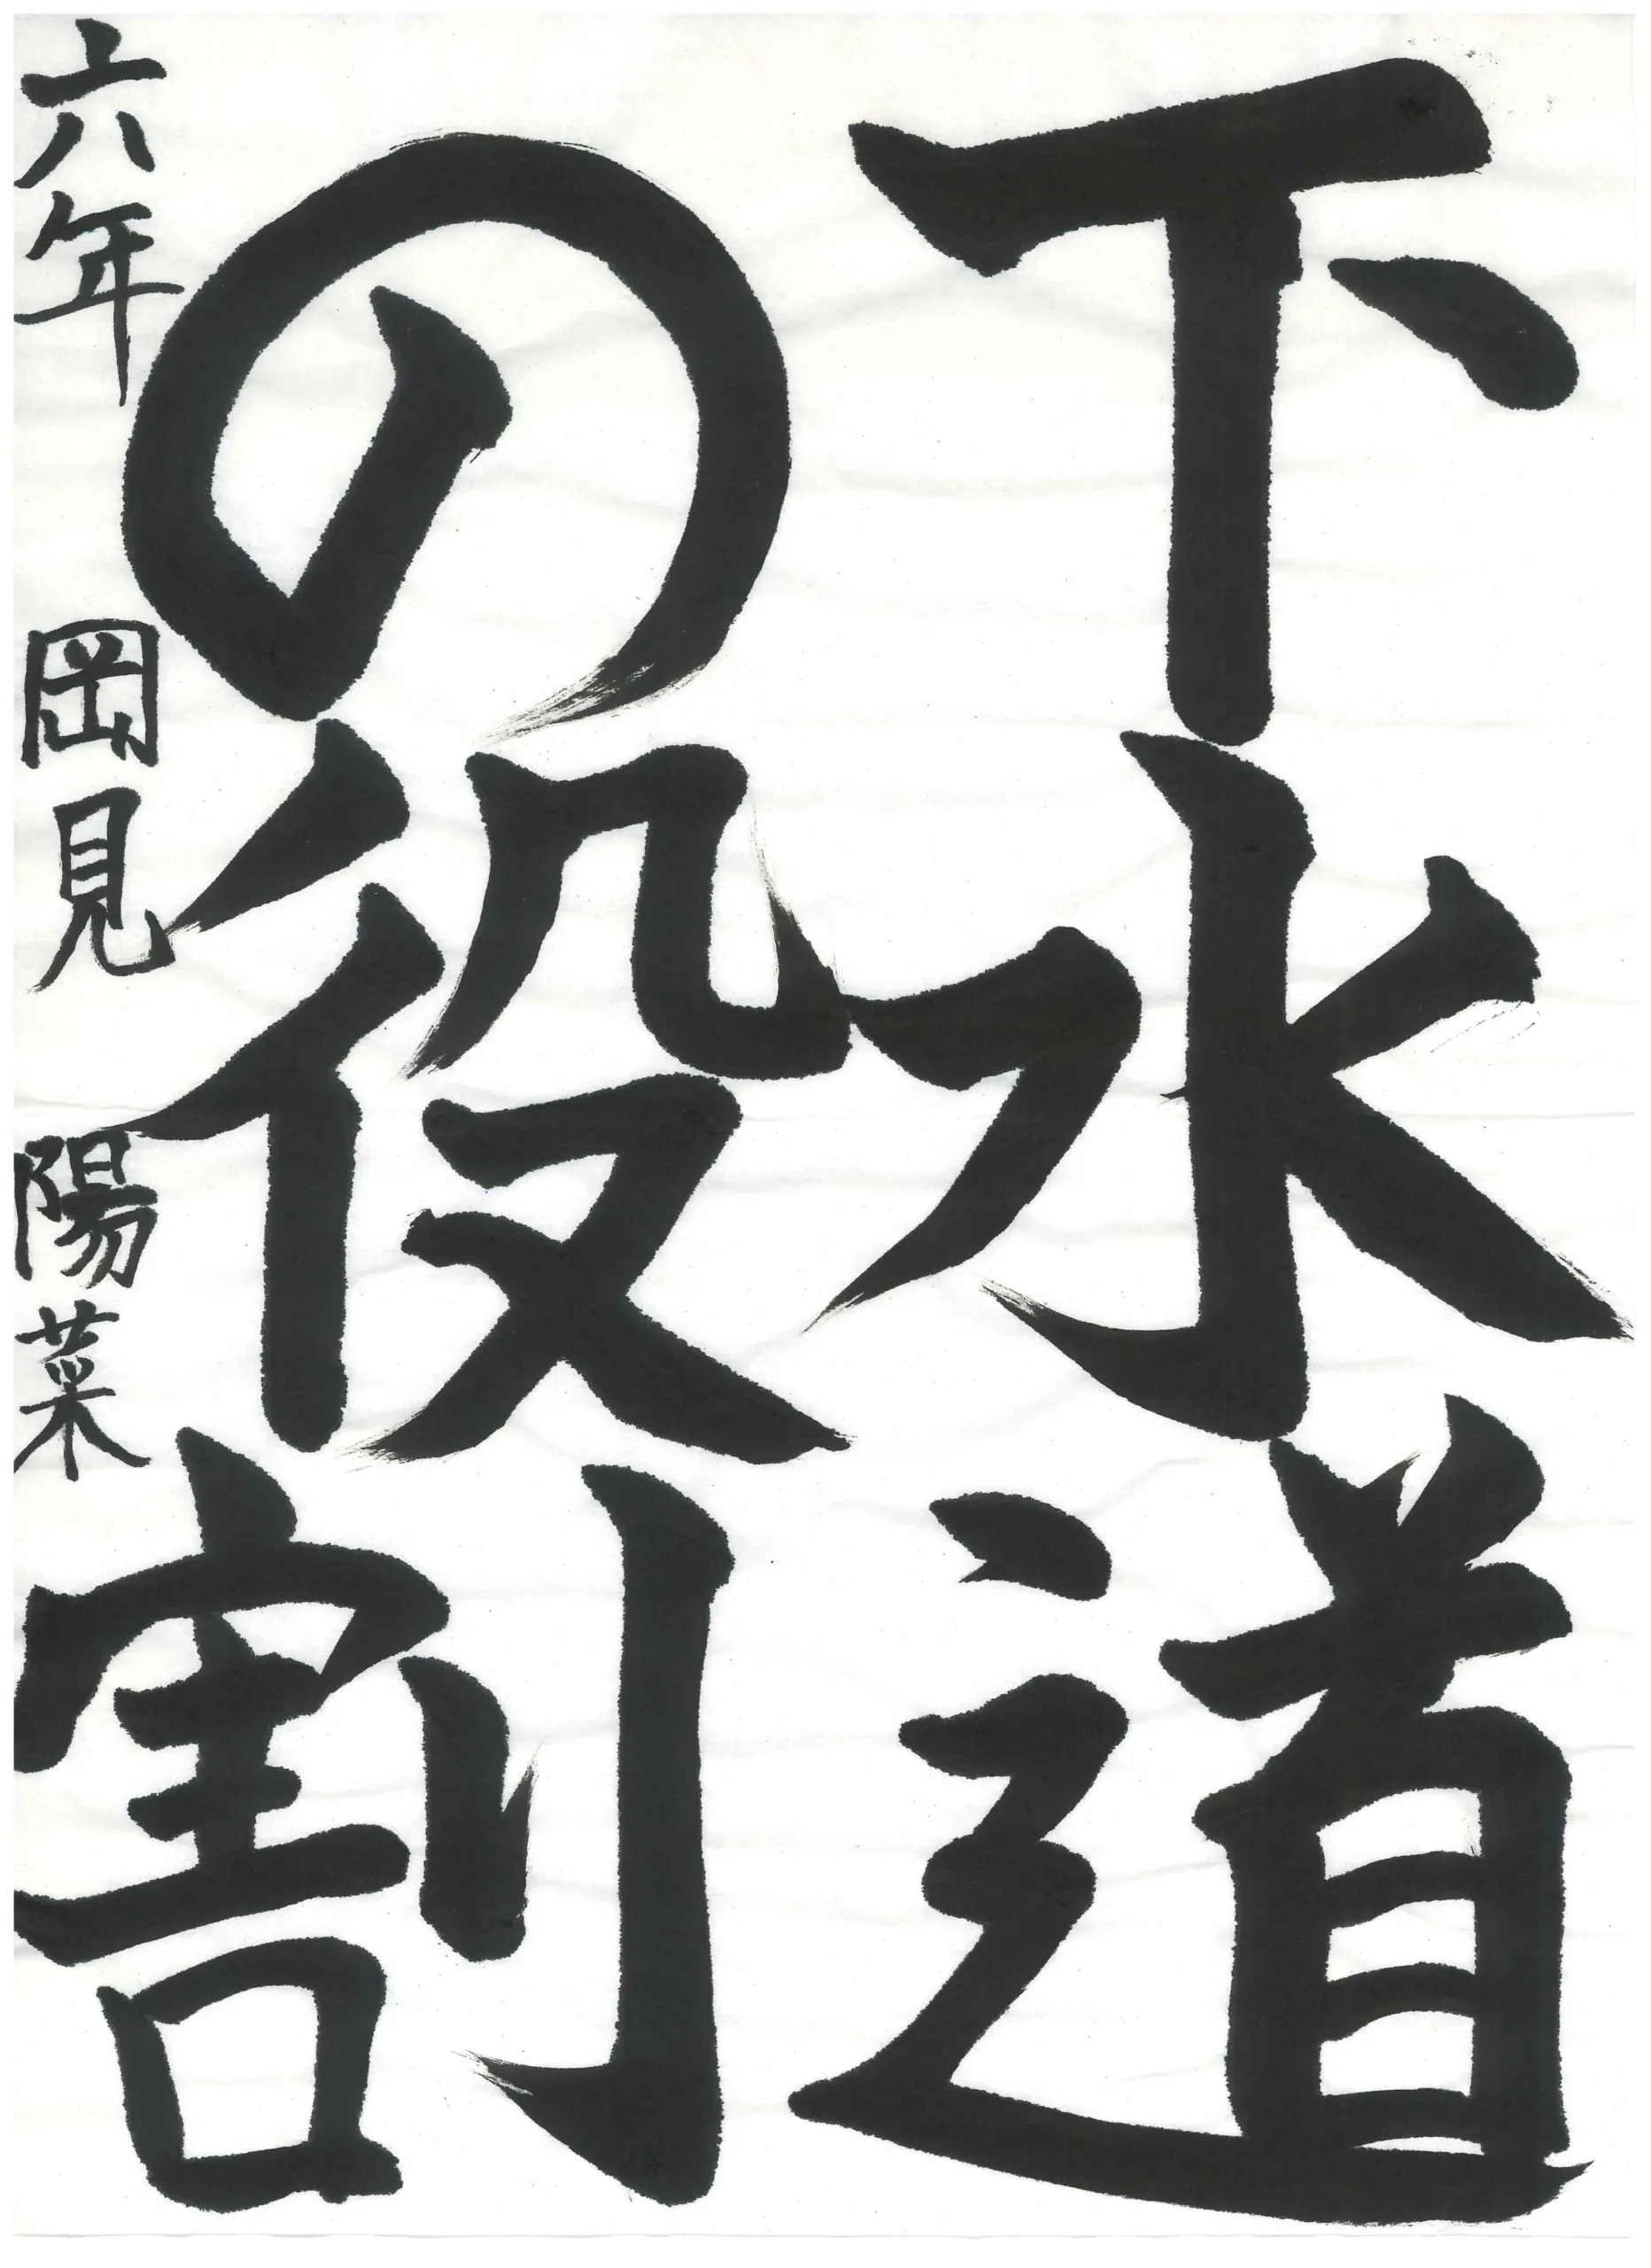 下水道
の役割
六年 岡見 陽菜